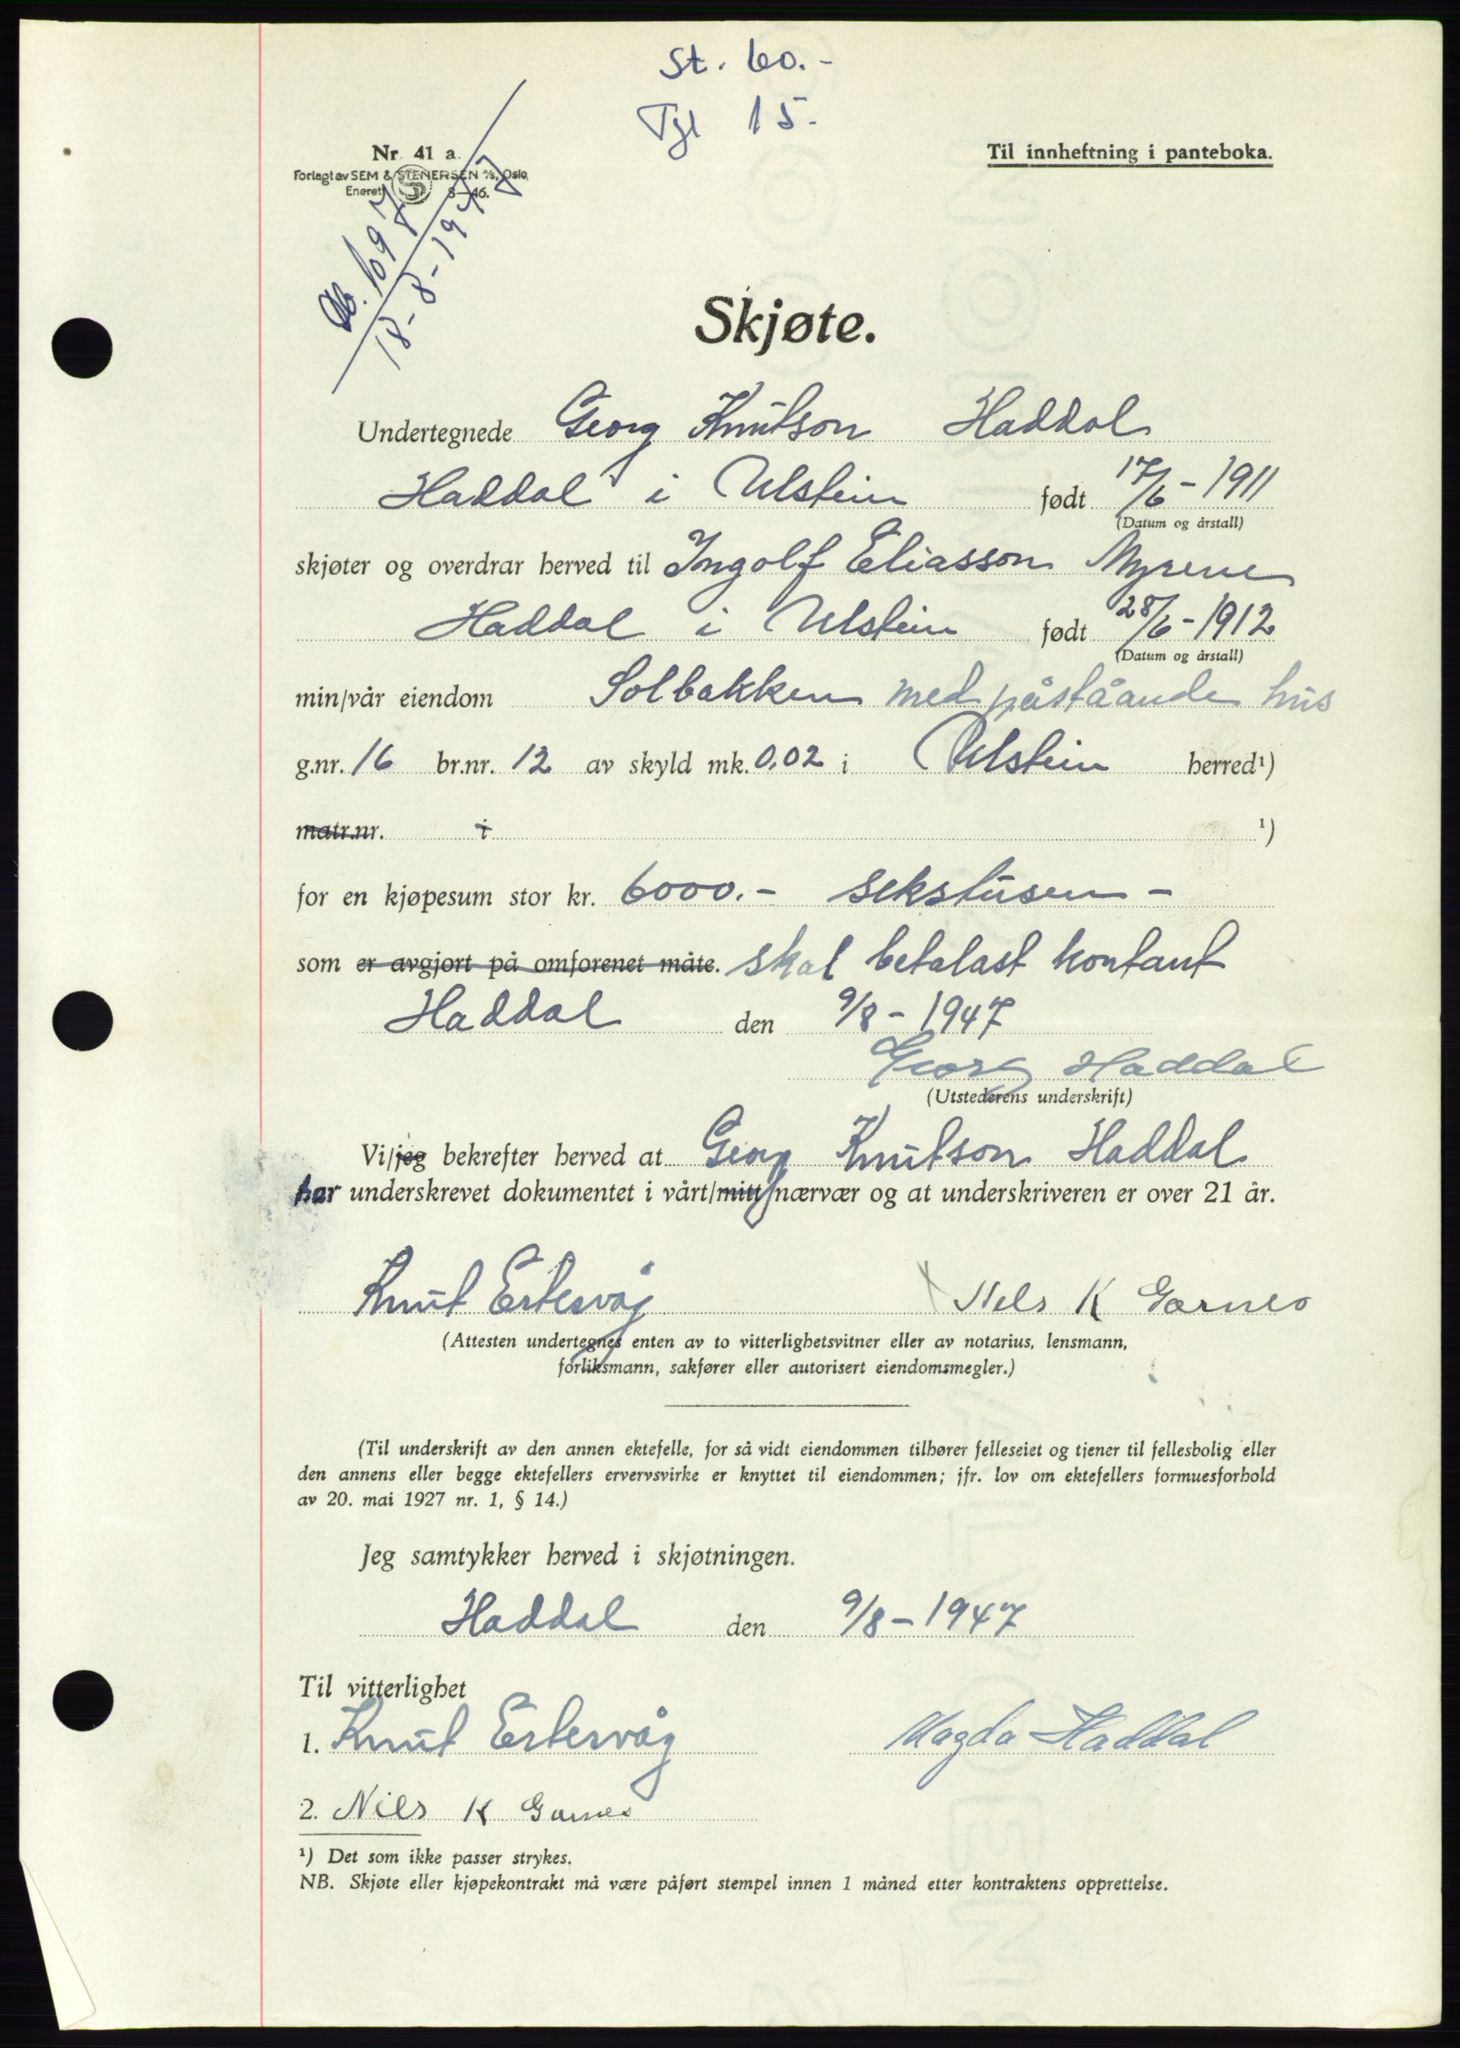 St. 60.-
Tgl 15.-
Nr. 41 a.
Forlagt av SEM & STENERSEN A/S, Oslo.
Eneret S 8—46.
Til innheftning i panteboka.
Db. 1097
18-8-1947
Skjøte.
Undertegnede Georg Knutson Haddal
Haddal i Ulstein født 17/6-1911
(Datum og årstall)
skjøter og overdrar herved til Ingolf Eliasson Myrene
Haddal i Ulstein født 28/6-1912
(Datum og årstall)
min/vår eiendom Solbakken med påståande hus
g.nr. 16 br.nr. 12 av skyld mk. 0,02 i Ulstein herred¹)
matr.nr. i ¹)
for en kjøpesum stor kr. 6000.- sekstusen -
som er avgjort på omforenet måte. skal betalast kontant
Haddal den 9/8-1947
Georg Haddal
(Utstederens underskrift)
Vi/jeg bekrefter herved at Georg Knutson Haddal
har underskrevet dokumentet i vårt/mitt nærvær og at underskriveren er over 21 år.
Knut Ertesvåg Nils K Garnes
(Attesten undertegnes enten av to vitterlighetsvitner eller av notarius, lensmann,
forliksmann, sakfører eller autorisert eiendomsmegler.)
(Til underskrift av den annen ektefelle, for så vidt eiendommen tilhører felleseiet og tjener til fellesbolig eller
den annens eller begge ektefellers ervervsvirke er knyttet til eiendommen; jfr. lov om ektefellers formuesforhold
av 20. mai 1927 nr. 1, § 14.)
Jeg samtykker herved i skjøtningen.
Haddal den 9/8-1947
Til vitterlighet
1. Knut Ertesvåg Magda Haddal
2. Nils K Garnes
¹) Det som ikke passer strykes.
NB. Skjøte eller kjøpekontrakt må være påført stempel innen 1 måned etter kontraktens opprettelse.